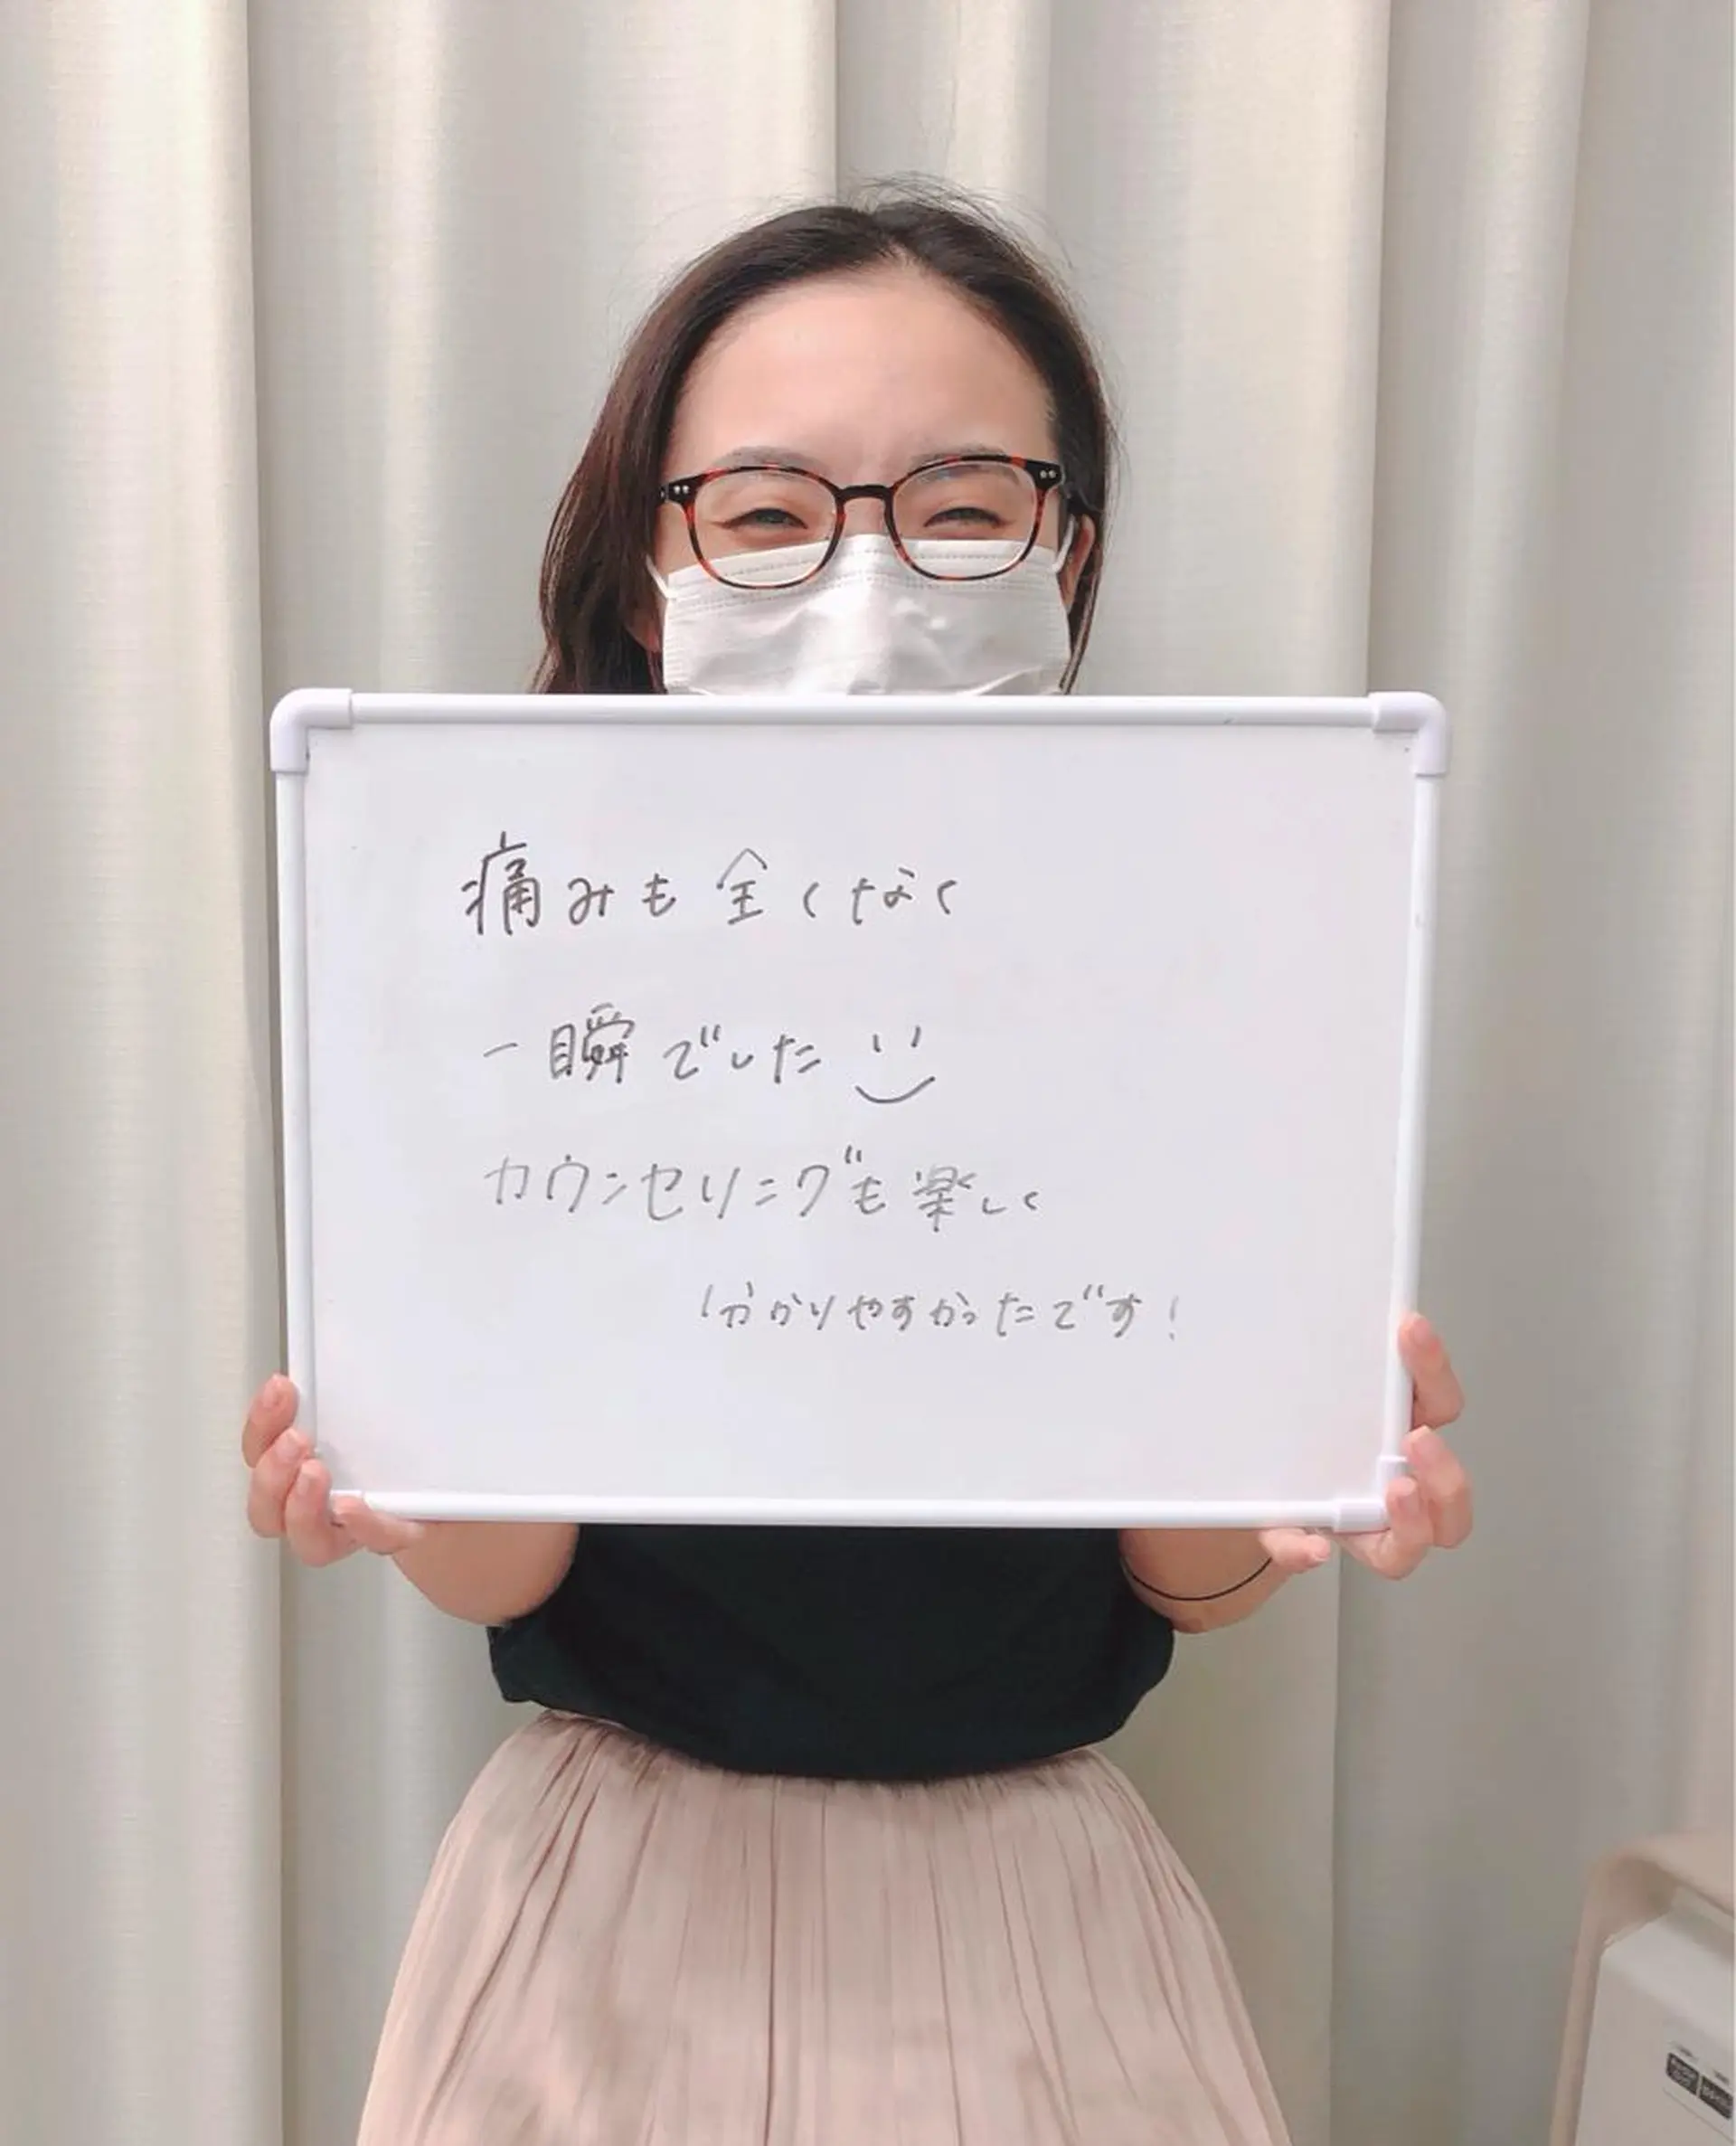 痛みも全くなく
一瞬でした
カウンセリングも楽しく
分かりやすかったです！